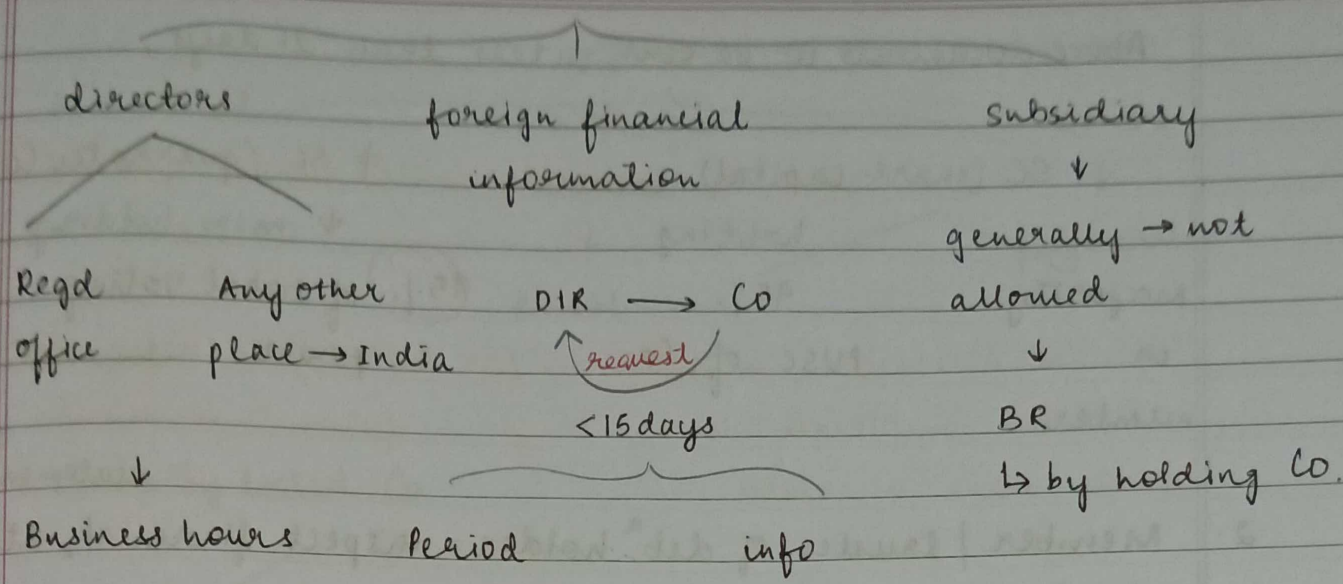 directors
Regd
office
Any other
place → India
↓
Business hours
foreign financial
information
DIR → CO
request
<15 days
Period
info
subsidiary
↓
generally → not
allowed
↓
BR
↳ by holding Co.